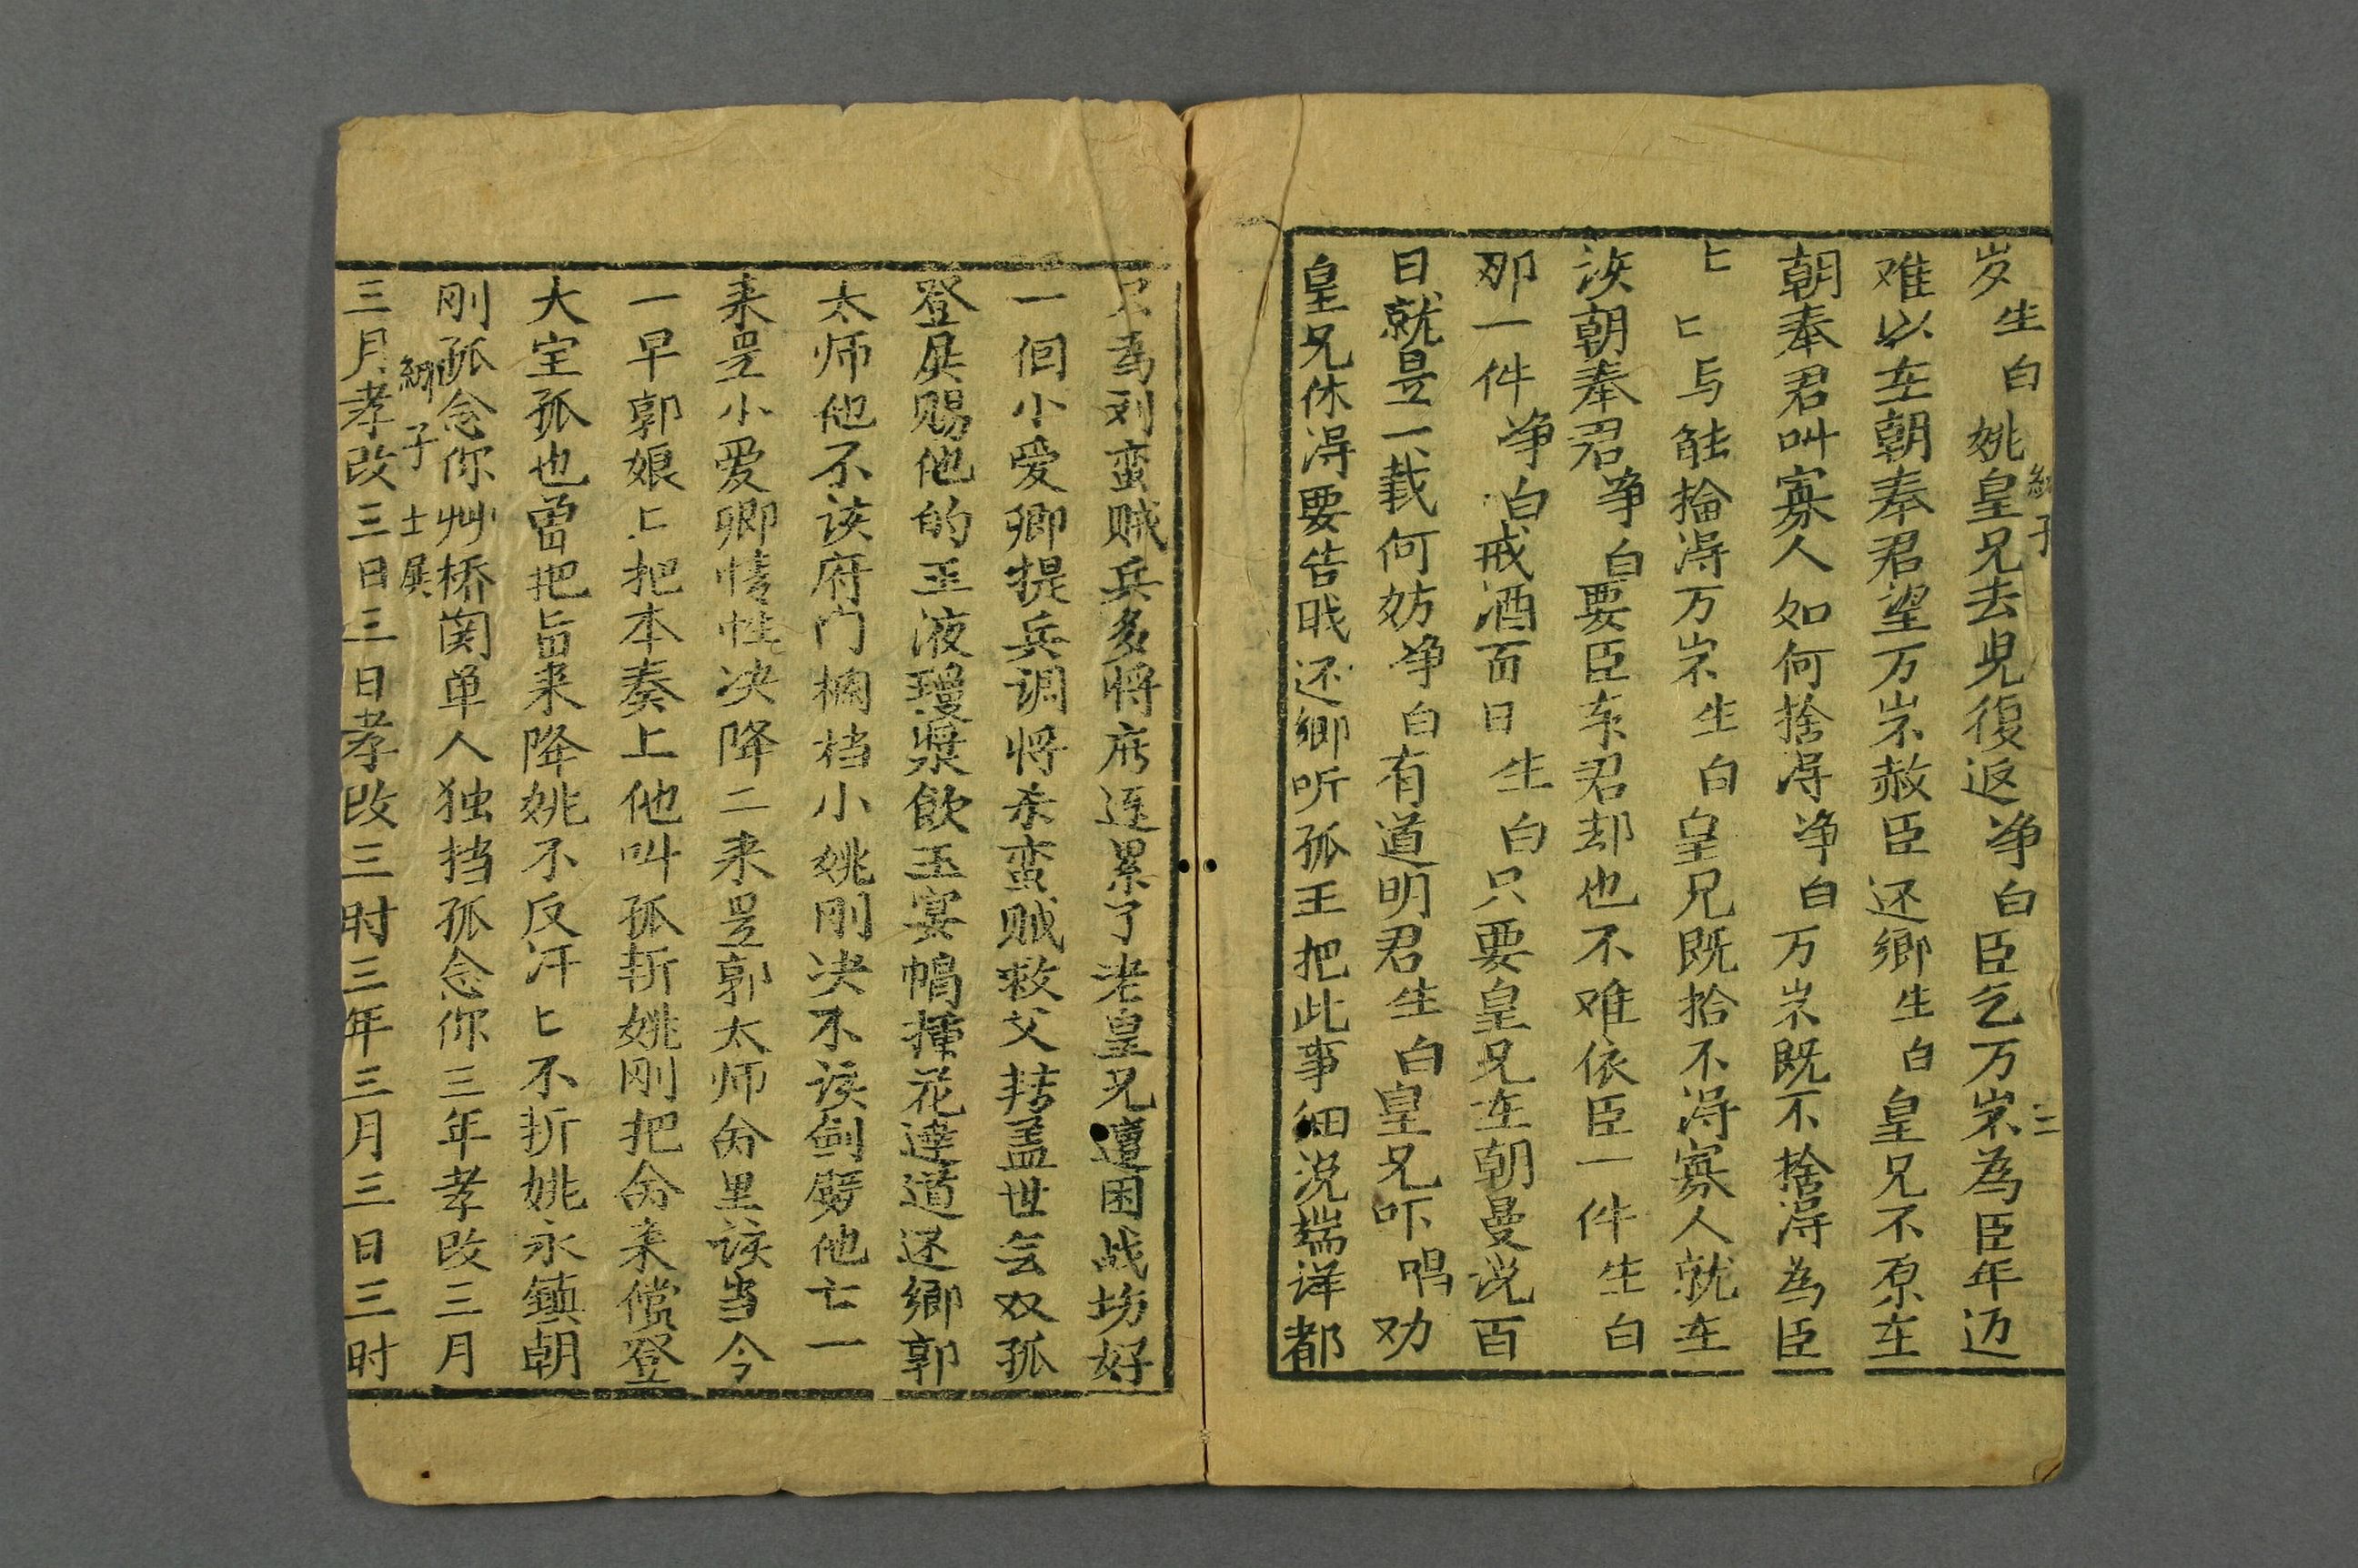 岁生白姚皇兄去皃復返净白臣乞万岽為臣年迈
难以在朝奉君望万岽赦臣还鄉生白皇兄不原在
朝奉君叫寡人如何捨淂净白万岽既不捨淂為臣
匕匕与能捨淂万岽生白皇兄既拾不淂寡人就在
诶朝奉君净白要臣东君却也不难依臣一件生白
那一件净白戒酒百日生白只要皇兄在朝曼说百
日就是一载何妨净白有道明君生白皇兄吓唱劝
皇兄休淂要告戝还鄉听孤王把此事细说端详都
只為刘蛮贼兵多将広连累了老皇兄遭困战坊好
一個小爱卿提兵调将杀蛮贼救父转盖世無双孤
登殿赐他的玉液瓊漿飲玉宴帽揷花達道还鄉郭
太师他不该府门拥档小姚刚决不该劍劈他亡一
来是小爱卿情性决降二来是郭太师命里该当今
一早郭娘匕把本奏上他叫孤折姚刚把命来償登
大宝孤也曽把旨来降姚不反汗匕不折姚永鎮朝
刚孤念你艸桥関单人独挡孤念你三年孝改三月
三月孝改三日三日孝改三时三年三月三日三时
綁子 上殿
綁子 三